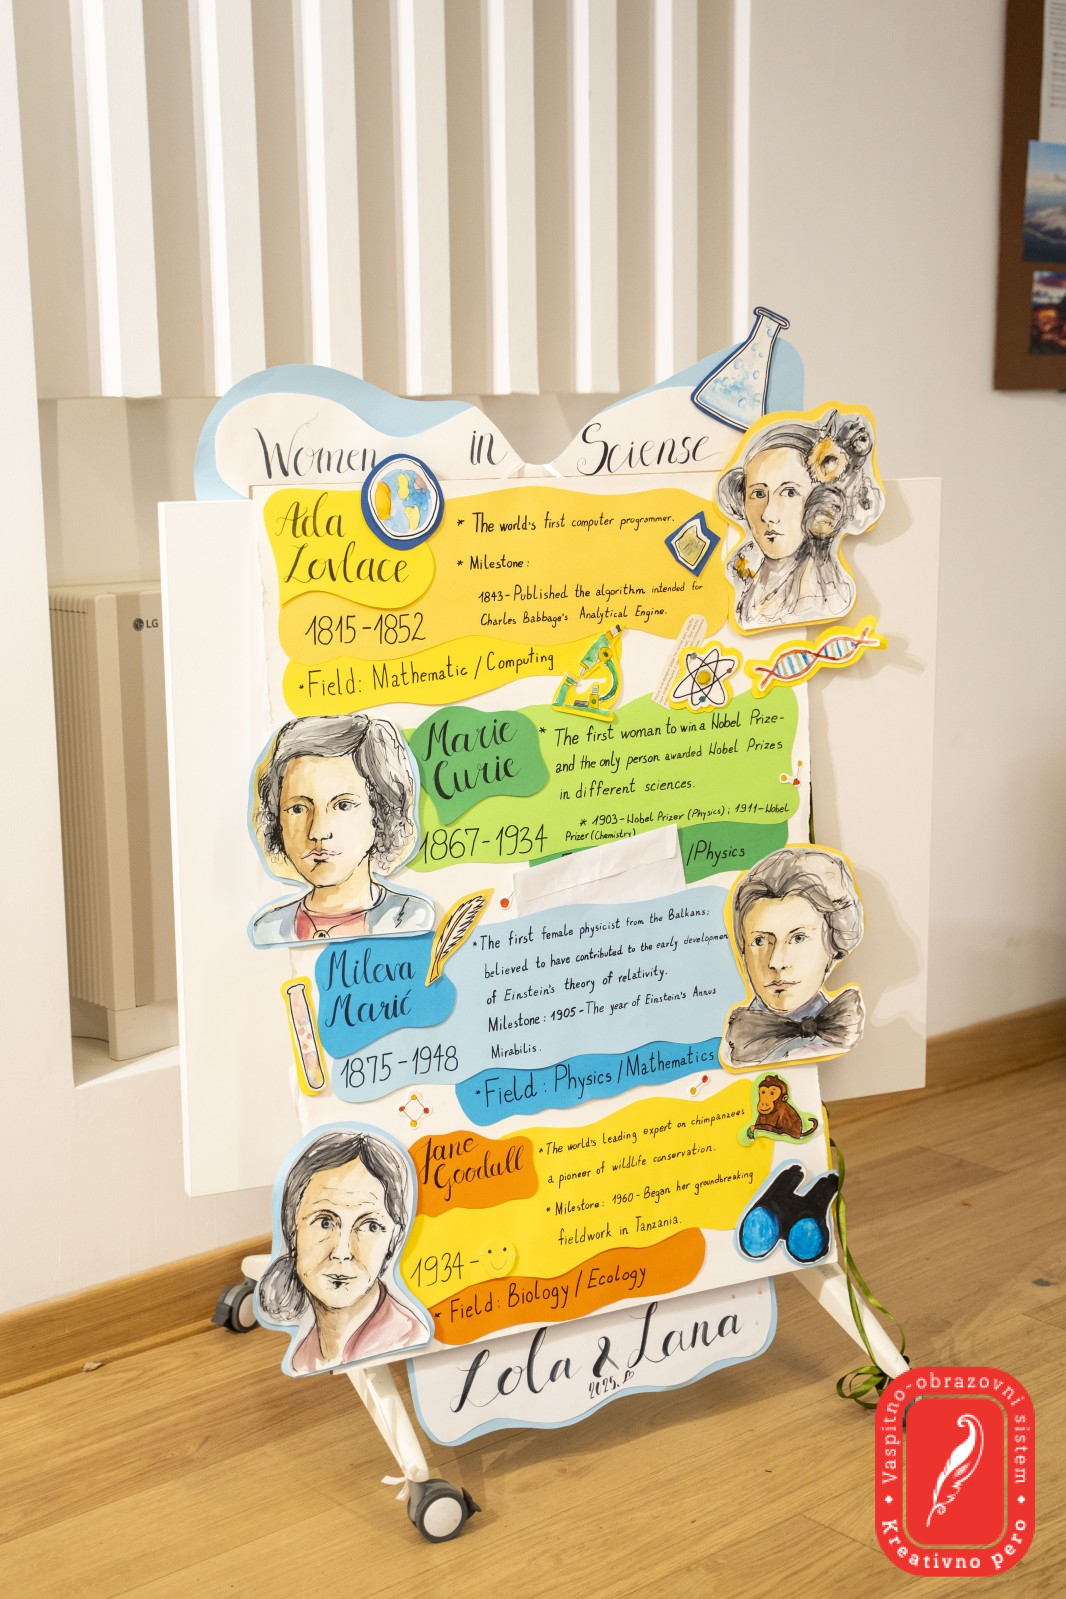 Women in Sciense
Ada
Lovlace
1815-1852
* The world's first computer programmer.
* Milestone:
1843-Published the algorithm intended for
Charles Babbage's Analytical Engine.
*Field: Mathematic / Computing
Marie
Curie
1867-1934
* The first woman to win a Nobel Prize-
and the only person awarded Nobel Prizes
in different sciences.
* 1903-Nobel Prizer (Physics); 1911-Nobel
Prizer (Chemistry)
/Physics
Mileva
Marić
1875-1948
*The first female physicist from the Balkans;
believed to have contributed to the early developmen
of Einstein's theory of relativity.
Milestone: 1905-The year of Einstein's Annus
Mirabilis.
*Field: Physics / Mathematics
Jane
Goodall
1934-
*The world's leading expert on chimpanzees
a pioneer of wildlife conservation.
* Milestore: 1960-Began her groundbreaking
fieldwork in Tanzania.
* Field: Biology / Ecology
Lola & Lana
2025.
LG
Vaspitno-obrazovni sistem
Kreativno pero